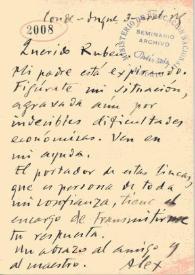 2008
MINISTERIO DE EDUCACION NACIONAL
SEMINARIO
ARCHIVO
Querido Rubén:
Mi padre está expirando.
Figúrate mi situación,
agravada aun por
indecibles dificultades
económicas. Ven en
mi ayuda.
El portador de estas líneas,
que es persona de toda
mi confianza, tiene el
encargo de transmitirme
tu respuesta.
Un abrazo al amigo y
al maestro. Alex